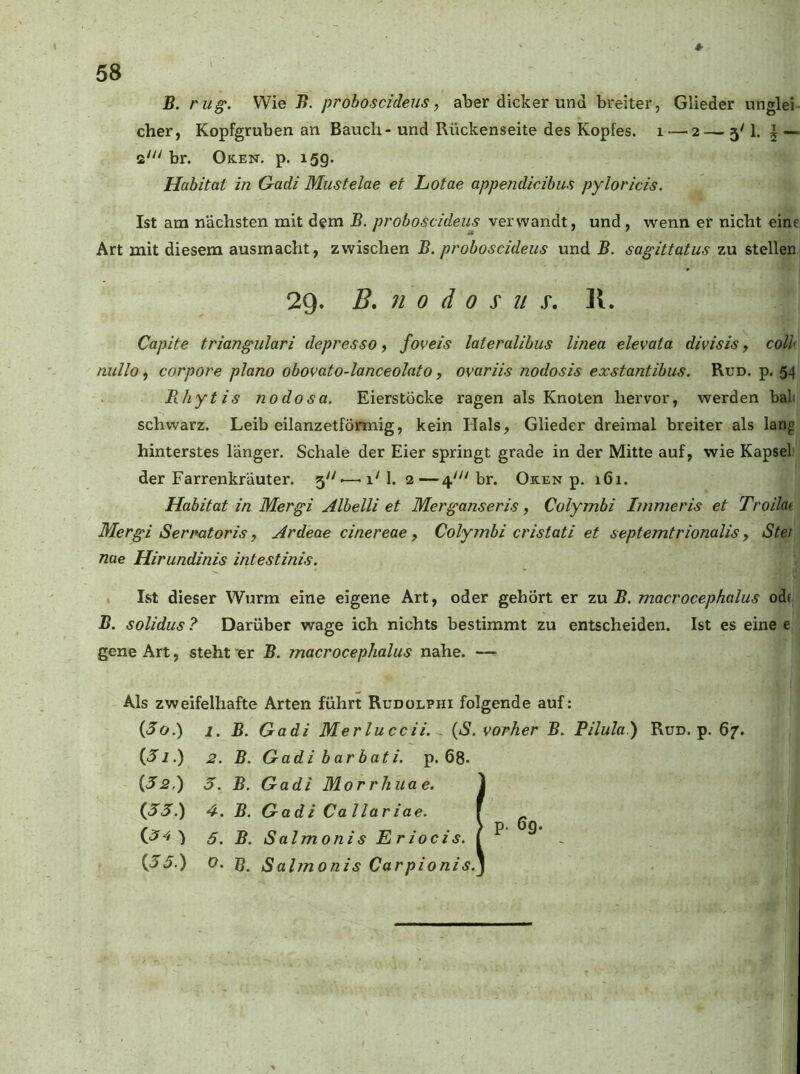 58
B. rug. Wie B. proboscideus, aber dicker und breiter, Glieder unglei-
cher, Kopfgruben an Bauch- und Rückenseite des Kopfes. 1 — 2 — 3′ l. ½ —
2′′′ br. Oken. p. 159.
Habitat in Gadi Mustelae et Lotae appendicibus pyloricis.
Ist am nächsten mit dem B. proboscideus verwandt, und, wenn er nicht eine
Art mit diesem ausmacht, zwischen B. proboscideus und B. sagittatus zu stellen
29. B. nodosus. R.
Capite triangulari depresso, foveis lateralibus linea elevata divisis, coll
nullo, corpore plano obovato-lanceolato, ovariis nodosis exstantibus. Rud. p. 54
Rhytis nodosa. Eierstöcke ragen als Knoten hervor, werden bal
schwarz. Leib eilanzetförmig, kein Hals, Glieder dreimal breiter als lang
hinterstes länger. Schale der Eier springt grade in der Mitte auf, wie Kapsel
der Farrenkräuter. 3′′ — 1′ l. 2 — 4′′′ br. Oken p. 161.
Habitat in Mergi Albelli et Merganseris, Colymbi Immeris et Troilae
Mergi Serratoris, Ardeae cinereae, Colymbi cristati et septemtrionalis, Ste
nae Hirundinis intestinis.
Ist dieser Wurm eine eigene Art, oder gehört er zu B. macrocephalus ode
B. solidus? Darüber wage ich nichts bestimmt zu entscheiden. Ist es eine e
gene Art, steht er B. macrocephalus nahe. —
Als zweifelhafte Arten führt Rudolphi folgende auf:
(30.) 1. B. Gadi Merluccii. (S. vorher B. Pilula.) Rud. p. 67.
(31.) 2. B. Gadi barbati. p. 68.
(32.) 3. B. Gadi Morrhuae.
(33.) 4. B. Gadi Callariae.
(34) 5. B. Salmonis Eriocis. } p. 69.
(35.) 6. B. Salmonis Carpionis.